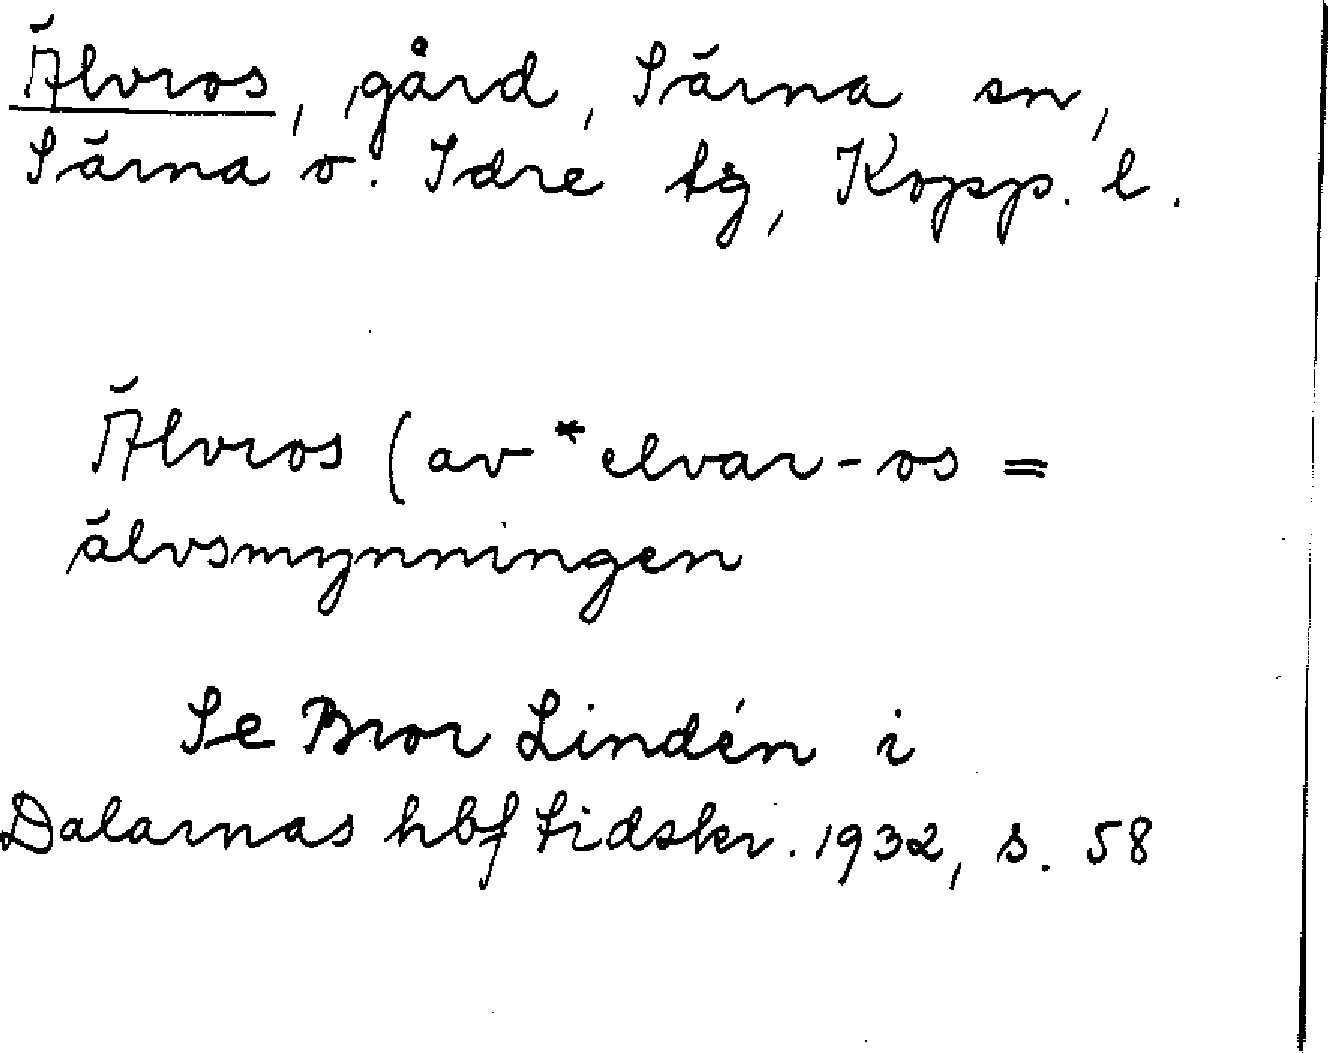 Älvros, gård, Särna sn,
Särna o. Idre tg, Kopp. l.
Älvros (av *elvar-os =
älvsmynningen
Se Bror Lindén i
Dalarnas hbf tidskr. 1932, s. 58